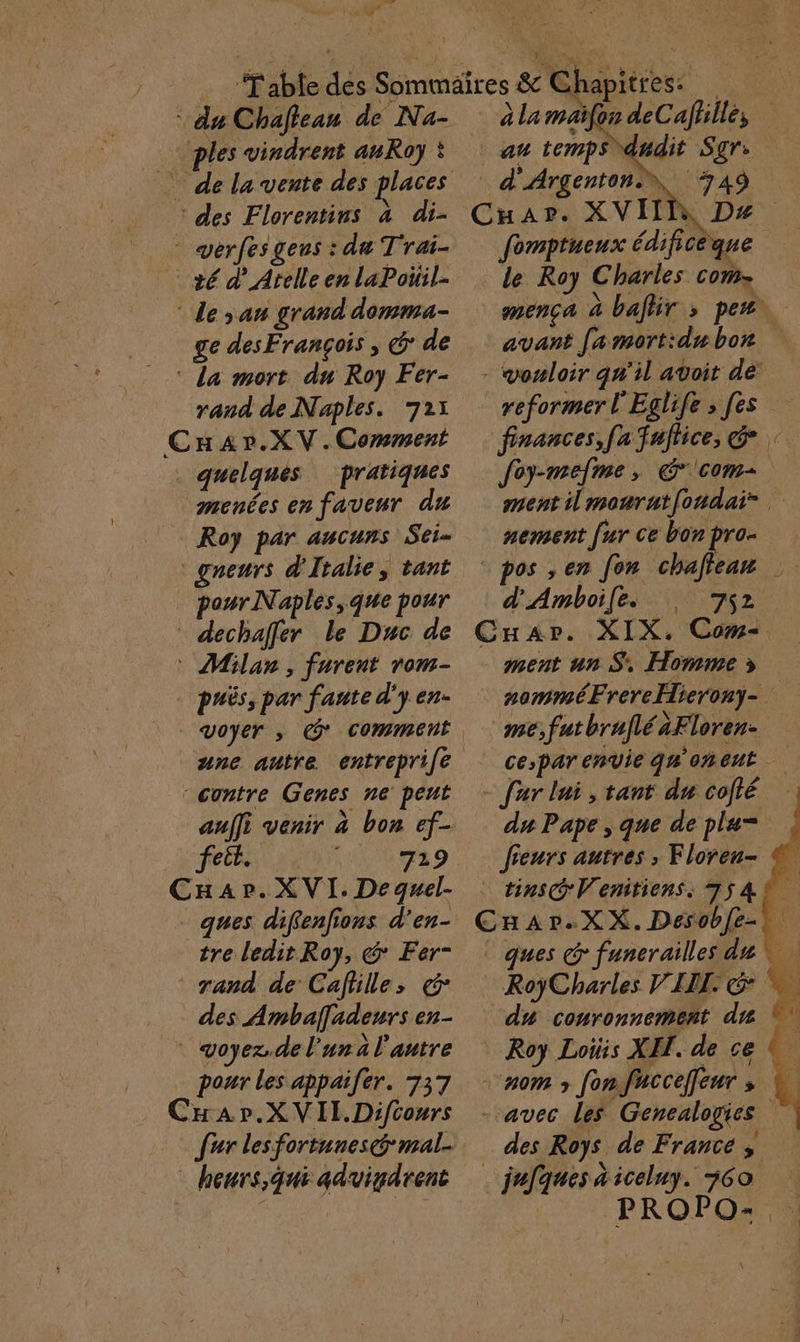 Table des Sommaires & Chapitres:
du Chaſteau de Na-
ples vindrent au Roy :
de la vente des places
des Florentins à di-
verſes gens : du Trai-
té d'Atelle en la Poüil-
le, au grand domma-
ge des François, & de
la mort du Roy Fer-
rand de Naples. 721
CHAP. XV. Comment
quelques pratiques
menées en faveur du
Roy par aucuns Sei-
gneurs d'Italie, tant
pour Naples, que pour
dechaſſer le Duc de
Milan, furent rom-
puës, par faute d'y en-
voyer, & comment
une autre entrepriſe
contre Genes ne peut
auſſi venir à bon ef-
fect. 729
CHAP. XVI. De quel-
ques diſſenſions d'en-
tre ledit Roy, & Fer-
rand de Caſtille, &
des Ambaſſadeurs en-
voyez de l'un à l'autre
pour les appaiſer. 737
CHAP. XVII. Diſcours
ſur les fortunes & mal-
heurs, qui advindrent
à la maiſon de Caſtille,
au temps dudit Sgr.
d'Argenton. 749
CHAP. XVIII. Du
ſomptueux édifice que
le Roy Charles com-
mença à baſtir, peu
avant ſa mort: du bon
vouloir qu'il avoit de
reformer l'Egliſe, ſes
finances, ſa Juſtice, &
ſoy-meſme, & com-
ment il mourut ſoudai-
nement ſur ce bon pro-
pos, en ſon chaſteau
d'Amboiſe. 752
CHAP. XIX. Com-
ment un S. Homme,
nommé Frere Hierony-
me, fut bruſlé à Floren-
ce, par envie qu'on eut
ſur lui, tant du coſté
du Pape, que de plu-
ſieurs autres, Floren-
tins & Venitiens. 754
CHAP. XX. Des obſe-
ques & funerailles du
Roy Charles VIII. &
du couronnement du
Roy Loüis XII. de ce
nom, ſon ſucceſſeur,
avec les Genealogies
des Roys de France,
juſques à iceluy. 760
PROPO-